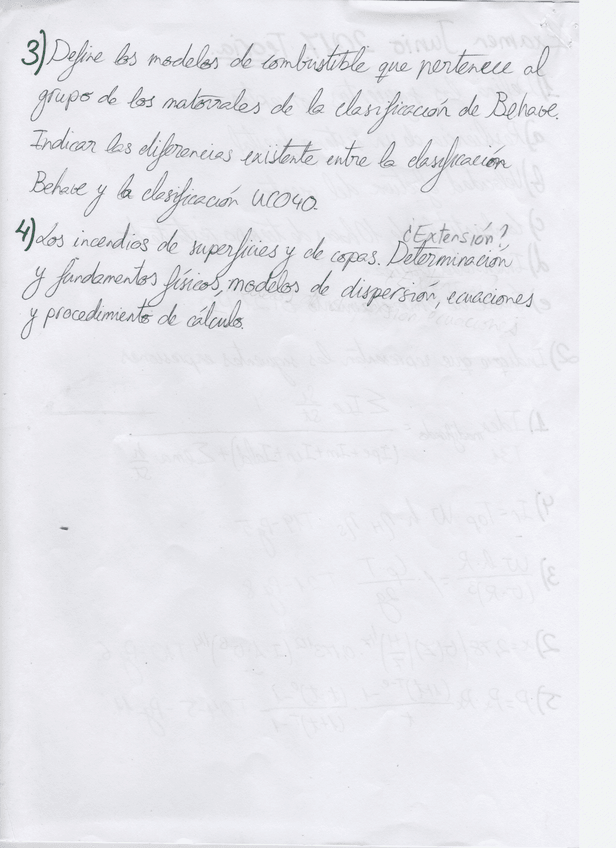 3) Define los modelos de combustible que pertenece al
grupo de los matorrales de la clasificación de Behave.
Indicar las diferencias existente entre la clasificación
Behave y la clasificación UCO40.
4) Los incendios de superficies y de copas. ¿Extensión? Determinación
y fundamentos físicos, modelos de dispersión, ecuaciones
y procedimiento de cálculo.